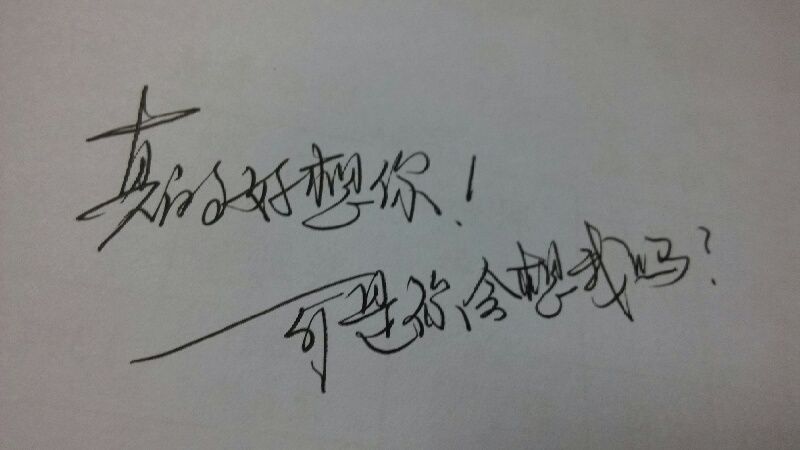 真的好想你!
可是你会想我吗?